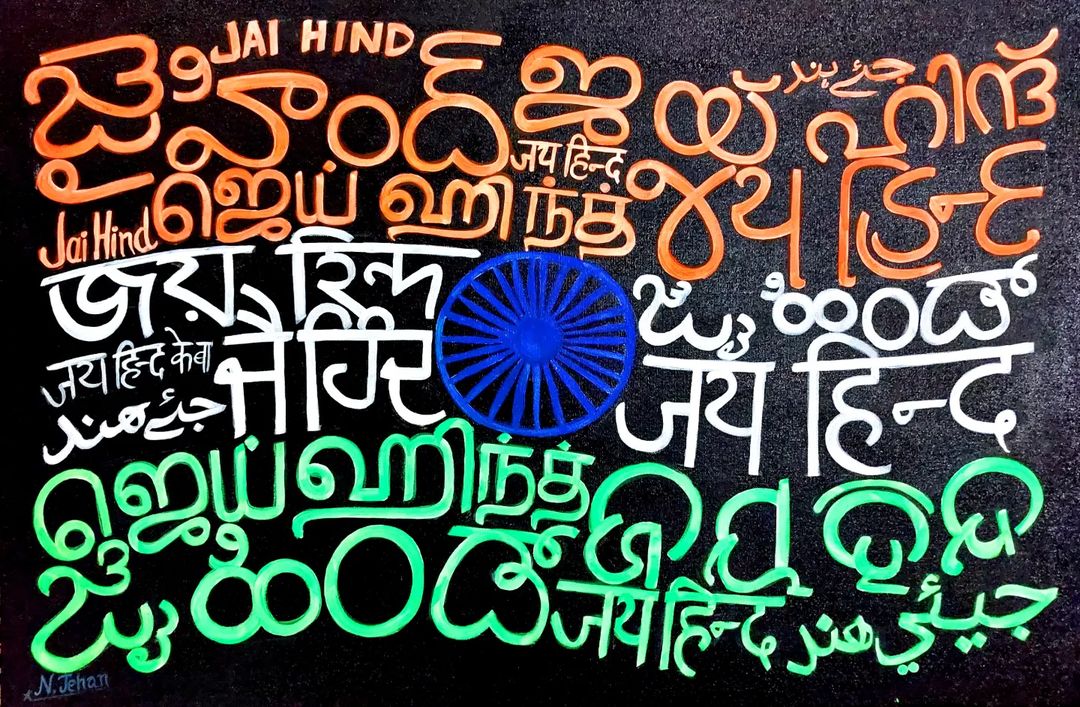 JAI HIND
ಜೈ ಹಿಂದ್ ജയ് ഹിന്ദ് جئے ہند
जय हिन्द
Jai Hind ஜெய் ஹிந்த் जय हिन्द
জয় হিন্দ జై హింద్
जय हिन्द के बा जै हिंद जय हिन्द
جئے ھند
ஜெய் ஹிந்த் ଜୟ ହିନ୍ଦ
జై హింద్ जय हिन्द جيئي هند
N. Jehan